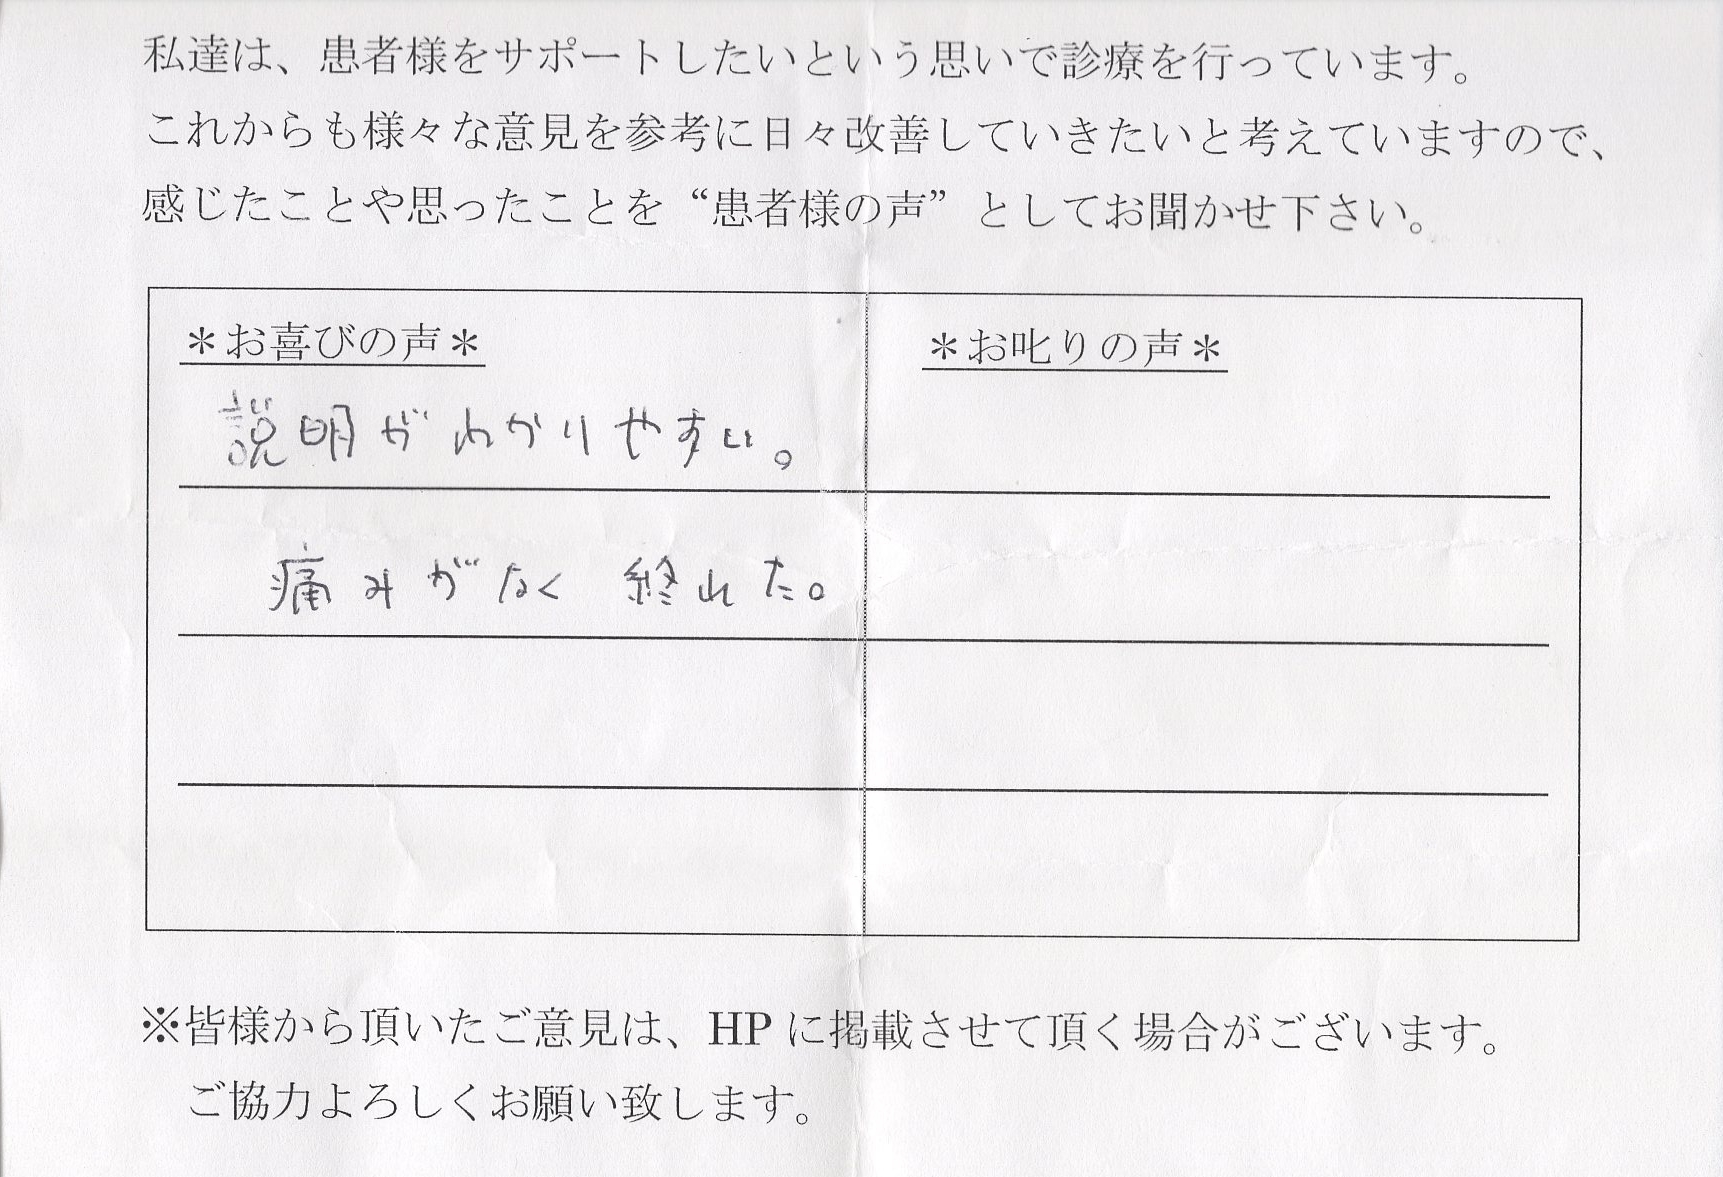 私達は、患者様をサポートしたいという思いで診療を行っています。
これからも様々な意見を参考に日々改善していきたいと考えていますので、
感じたことや思ったことを“患者様の声”としてお聞かせ下さい。
＊お喜びの声＊
説明がわかりやすい。
痛みがなく 終れた。
＊お叱りの声＊
※皆様から頂いたご意見は、HPに掲載させて頂く場合がございます。
ご協力よろしくお願い致します。